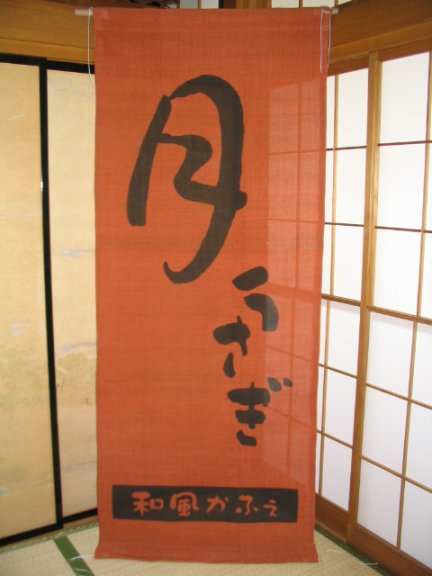 月うさぎ
和風かふぇ